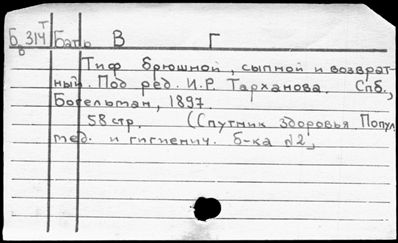 Б 314 т Баль В Г
8
Тиф брюшной, сыпной и возврат-
ный. Под ред. И.Р. Тарханова. Спб.,
Богельман, 1897.
58 стр. ((Спутник здоровья Попул.
мед. и гигиенич. б-ка №2,